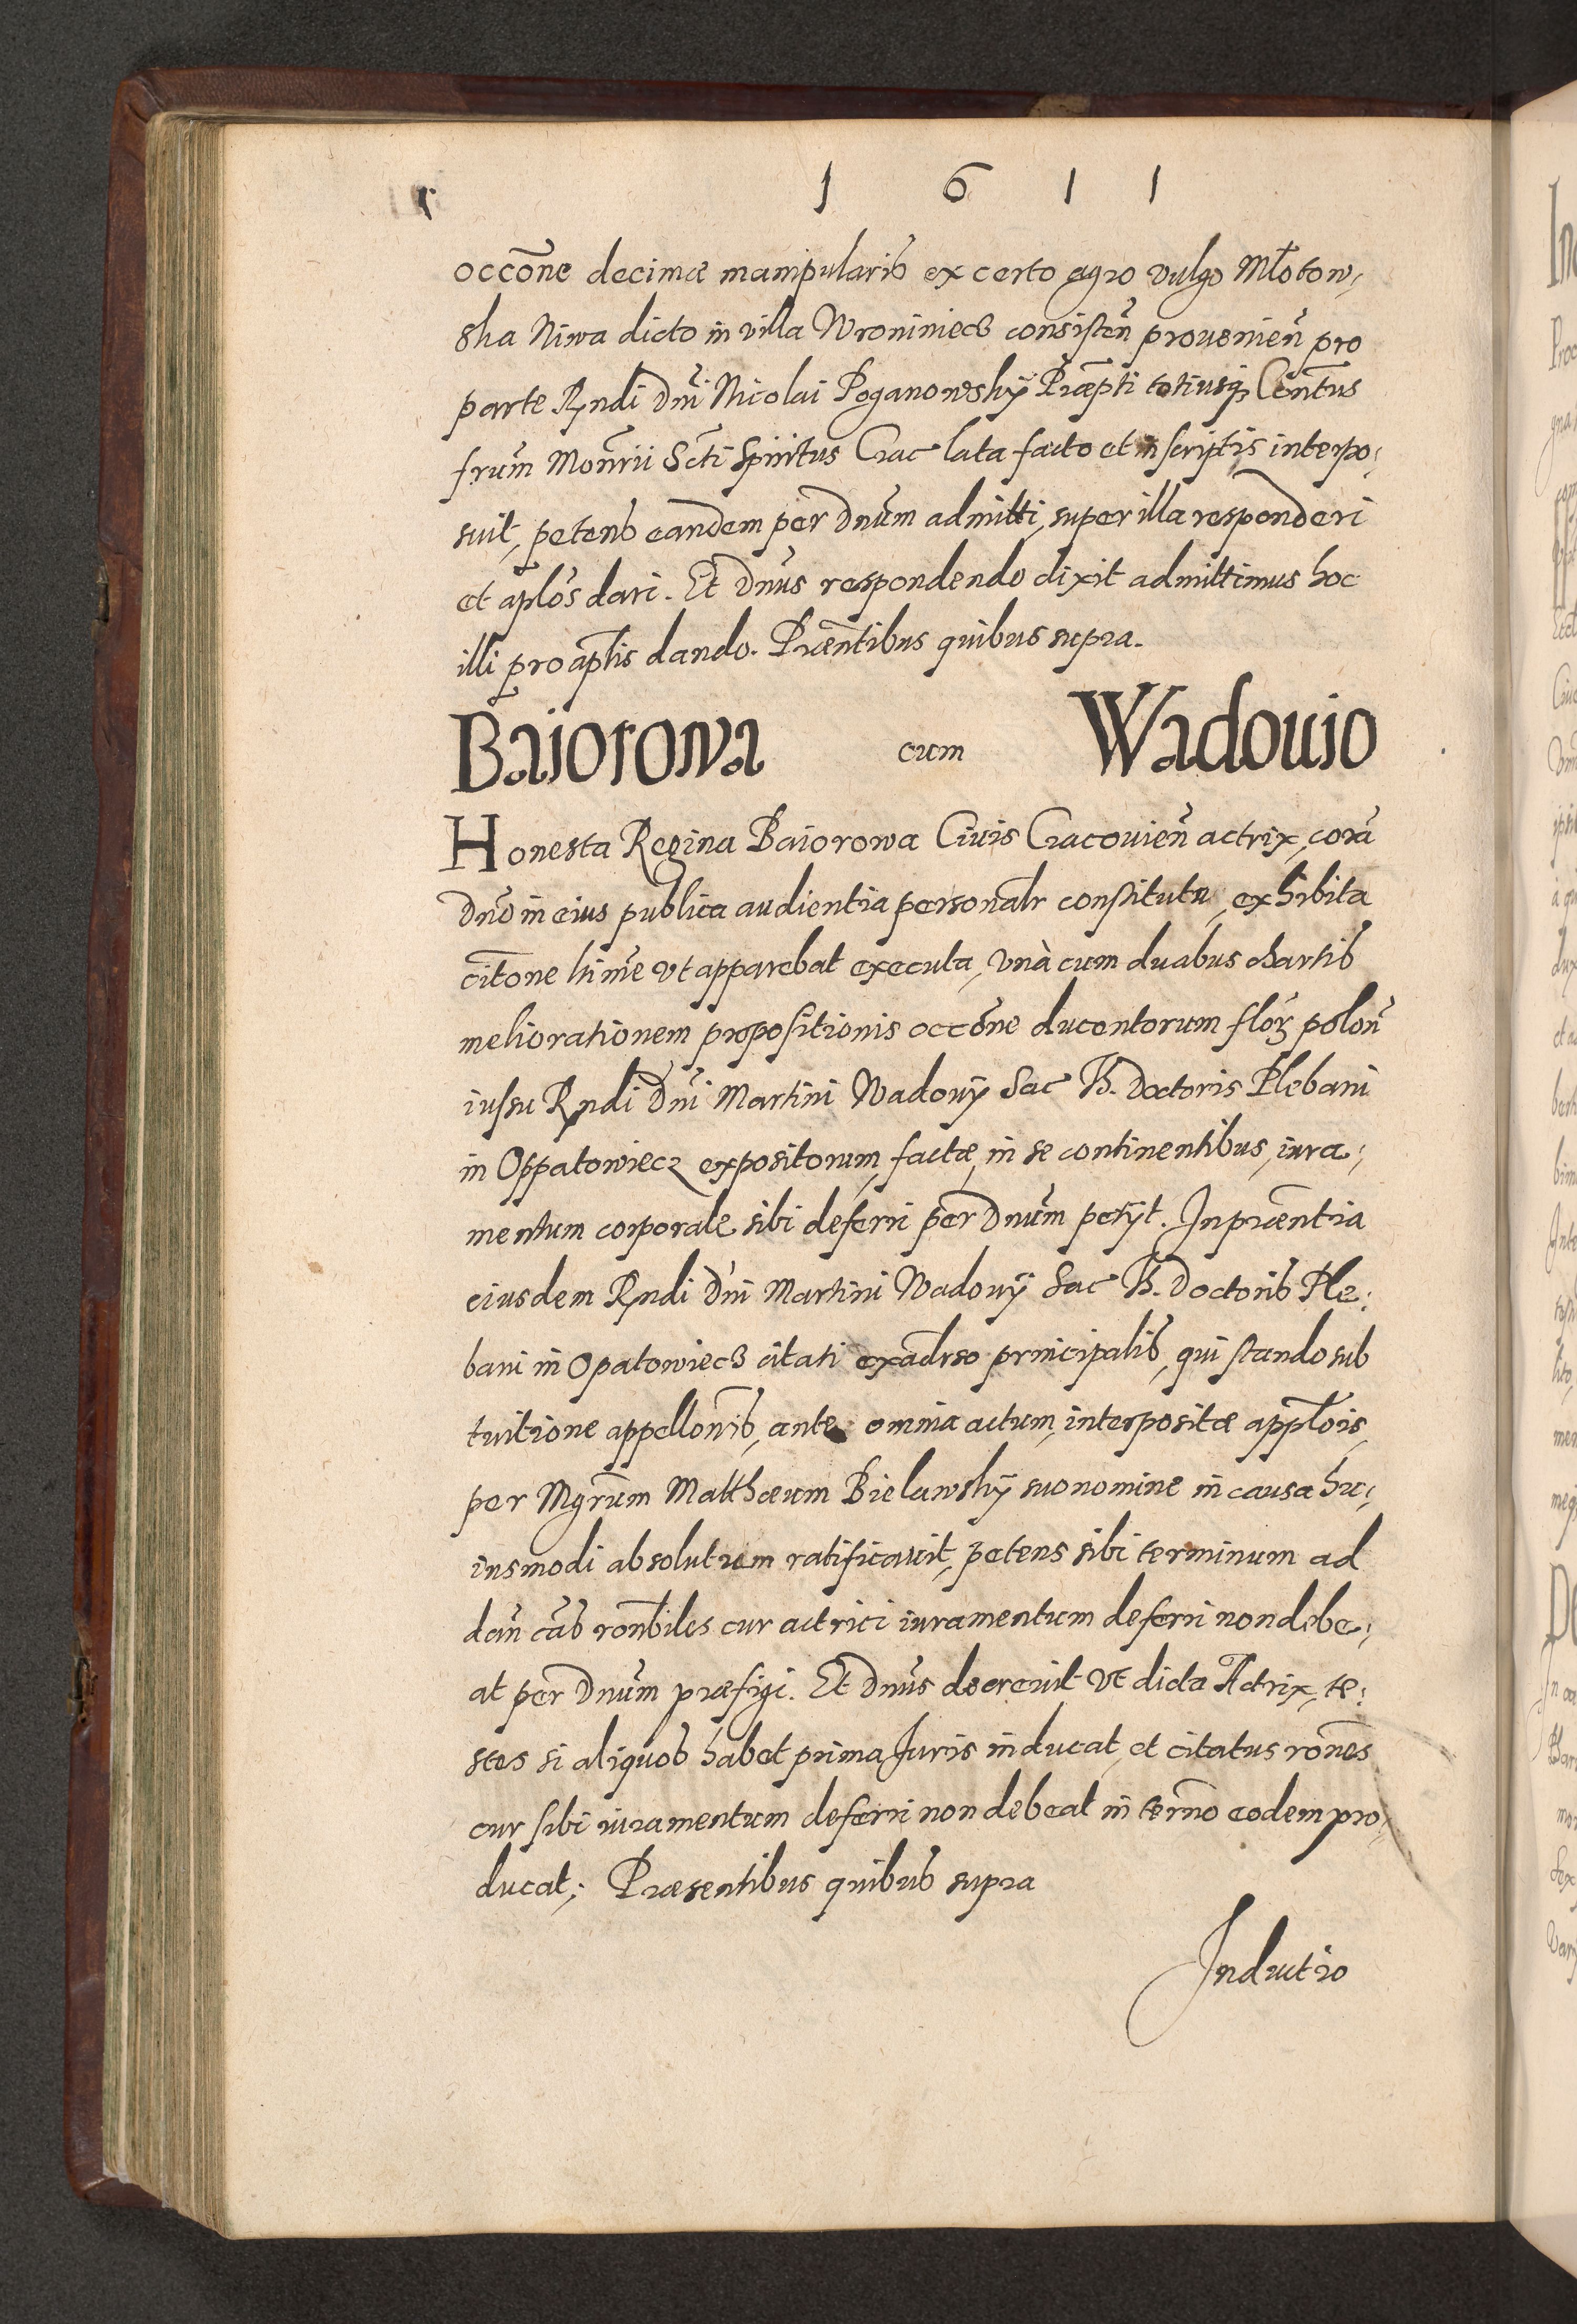 1 6 1 1
occõne decimæ manipularis ex certo agro vulgo Młotow,
ska Niwa dicto in villa Wroniniecz consisteñ prouenieñ pro
parte Rndi Dñi Nicolai Poganowskÿ Præpti totiusq3 Conṽtus
frum̃ Monrĩi Scti Spiritus Crac lata facto et in scriptis interpo,
suit, petens eandem per Dnũm admitti, super illa responderi
et aplõs dari. Et Dnũs respondendo dixit admittimus hoc
illi pro aptis dando. Præñtibus quibus supra.
Baiorowa cum Wadouio
Honesta Regina Baiorowa Ciuis Cracouieñ actrix, corã
Dnõ in eius publica audientia personalr constituta, exhibita
citõne ltime vt apparebat executa, vnà cum duabus chartis
meliorationem propositionis occõne ducentorum flor̃ poloñ
iussu Rndi Dñi Martini Wadouÿ Sac Th. Doctoris Plebani
in Oppatowiecz expositorum, factæ, in se continentibus, iura,
mentum corporale sibi deferri per Dnũm petijt. In præñtia
eiusdem Rndi Dñi Martini Wadouÿ Sac Th. Doctoris Ple,
bani in Opatowiecz citati exadrso principalis, qui stando sub
tuitione appellonis, ante omnia actum, interpositæ applõis,
per Mgrũm Matthæum Bielawskÿ suo nomine in causa hu,
iusmodi absolutum ratificauit, petens sibi terminum ad
dañ cãs ronbiles cur actrici iuramentum deferri non debe,
at per Dnũm præfigi. Et Dnũs decreuit vt dicta Actrix, te,
stes si aliquos habet prima Juris inducat, et citatus rones
cur sibi iuramentum deferri non debeat in termõ eodem pro,
ducat; Præsentibus quibus supra
Inductio